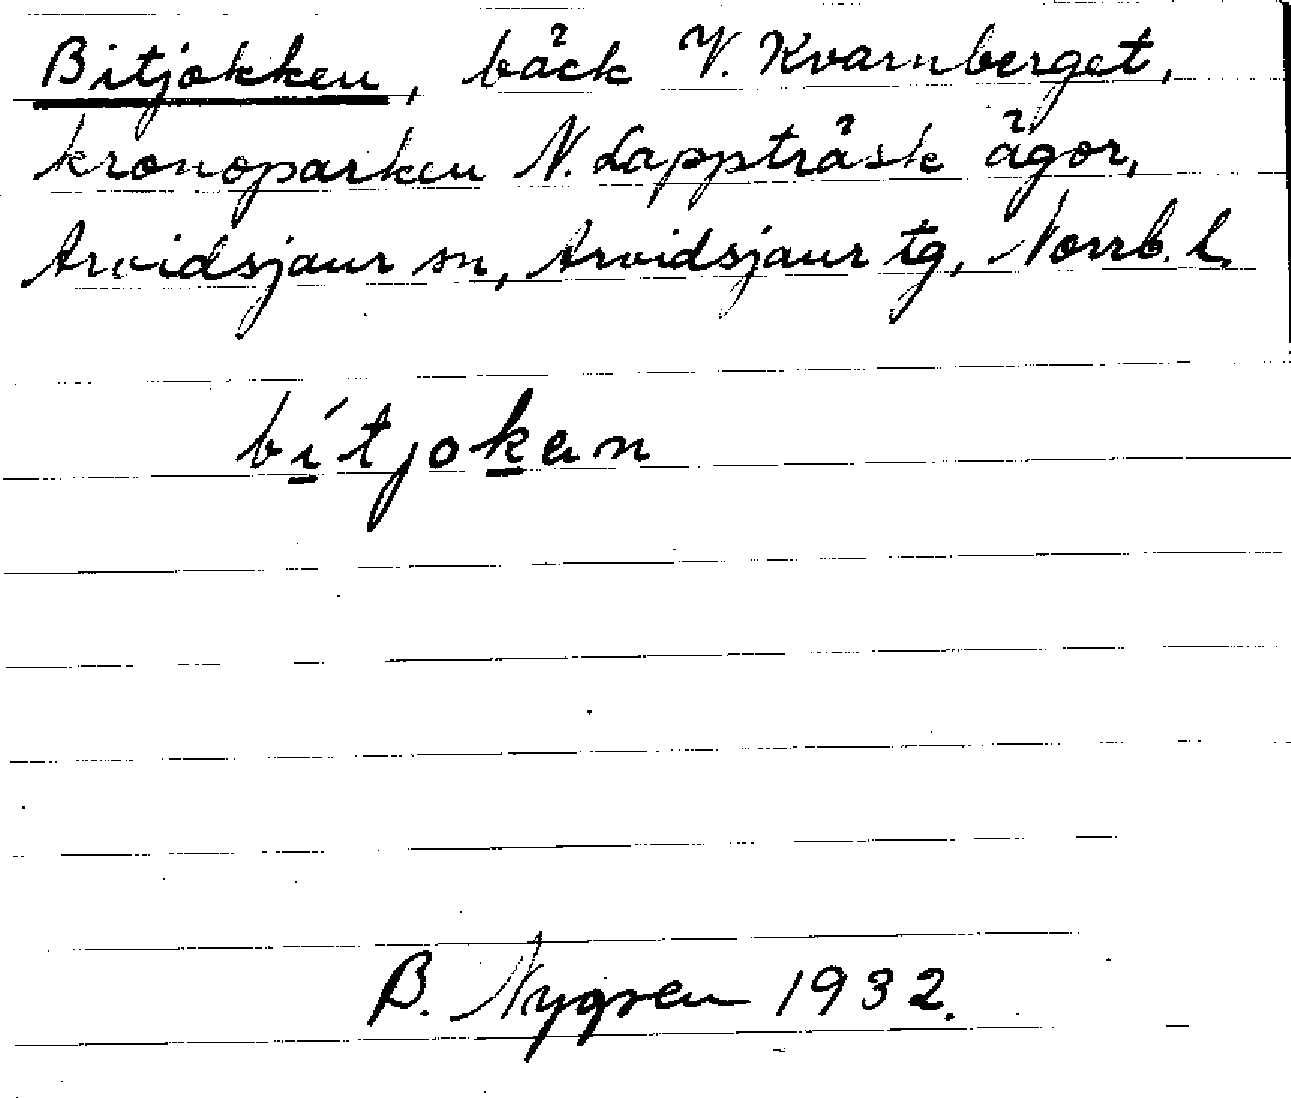 Bitjokken, bäck V. Kvarnberget,
kronoparken N. Lappträsk ägor,
Arvidsjaur sn, Arvidsjaur tg, Norrb. l.
bítjokan
B. Nygren 1932.